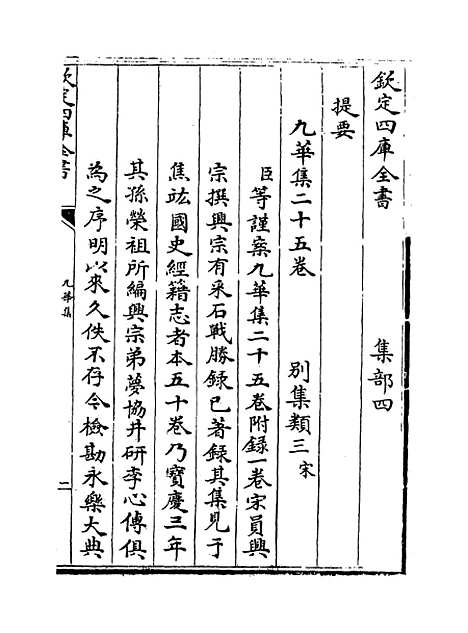 欽定四庫全書　集部四
提要
九華集二十五卷　別集類三宋
臣等謹案九華集二十五卷附録一卷宋員興
宗撰興宗有采石戰勝録已著録其集見于
焦竑國史經籍志者本五十卷乃寶慶三年
其孫榮祖所編興宗弟夢協井研李心傳俱
為之序明以來久佚不存今檢勘永樂大典
欽定四庫全書
九華集
二